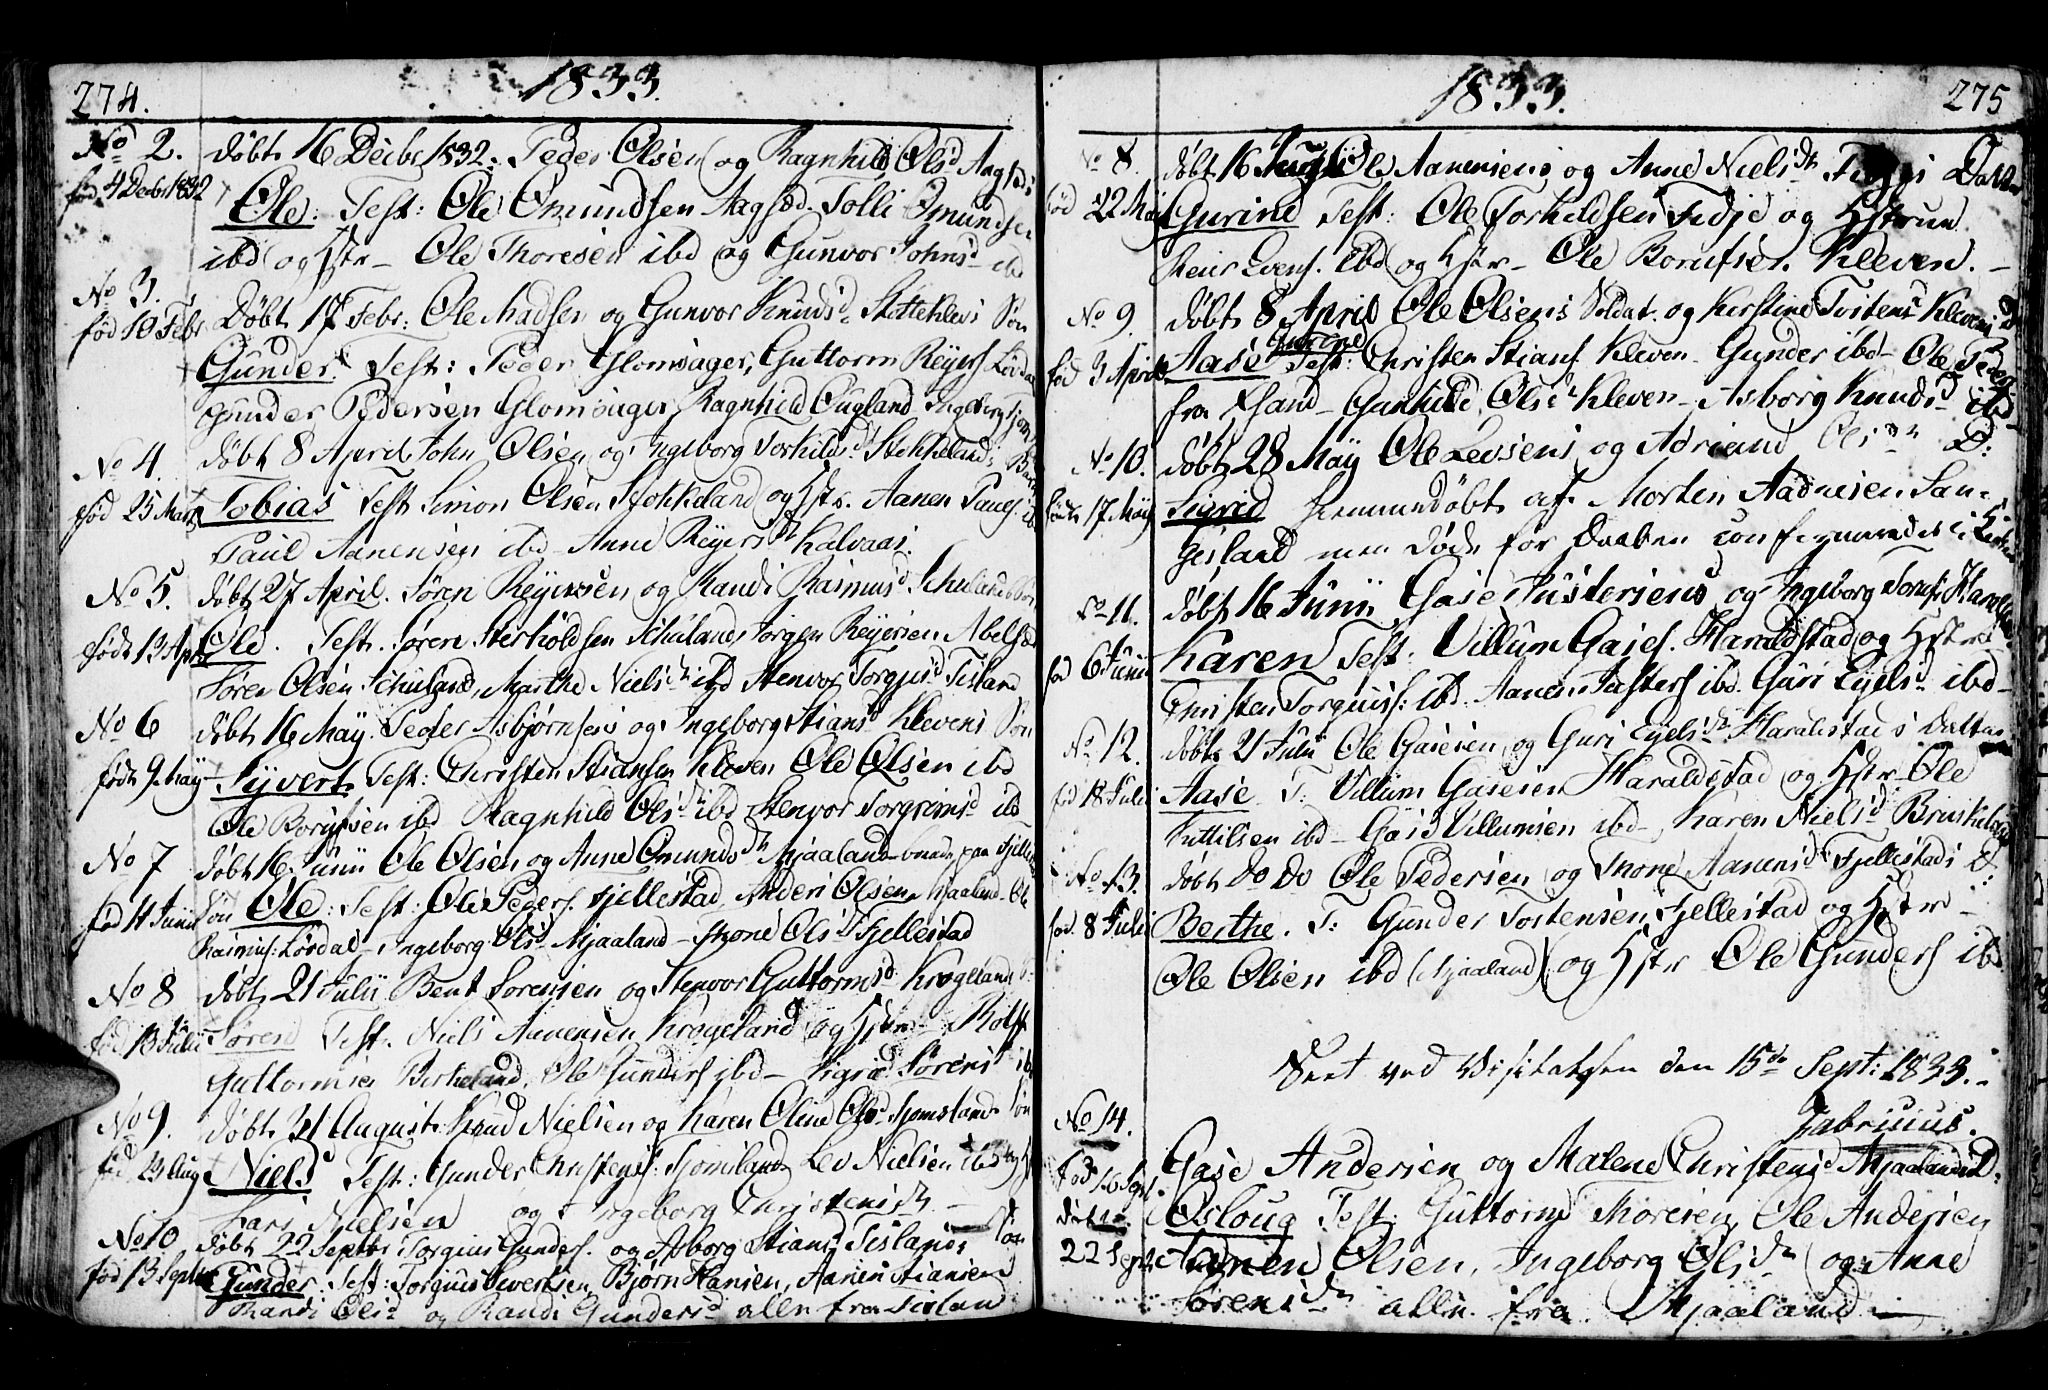 274.
1833.
No 2.
født 4 Decbr 1832
døbt 16 Decbr 1832. Peder Olsen og Ragnhild Olsd
Ole: Test: Ole Omundsen Tolli Omundsen
ibd og Hstr – Ole Thoresen ibd og Gunvor Johnsd ibd
No 3.
fød 10 Febr
Døbt 17 Febr: Ole Madsen og Gunvor Knudsd Søn
Gunder. Test: Peder Glomsager, Guttorm Reyers
Gunder Pedersen Glomsager Ragnhild Øugland Ingeborg
No 4.
fød 25 Marts
døbt 8 April John Olsen og Ingeborg Torkildsd Stokkelands
Tobias Test Simon Olsen Stokkeland og Hstr. Aanen
Paul Aanensen ibd – Anne Reyersdtr Kalvaas.
No 5.
født 13 Apr
døbt 27 April. Søren Reyersen og Randi Rasmusd
Ole. Test. Søren Jørgen Reyersen
Søren Olsen Marthe Nielsdtr ibd Stenvor Torgiusd Tisland
No 6
født 9 May
døbt 16 May. Peder Asbjørnsens og Ingeborg Stiansd Klevens Søn
Syvert Test: Christen Stiansen Kleven Ole Olsen ibd
Ole Borufsen ibd Ragnhild Olsdtr ibd Stenvor Torgrimsd ibd
No 7
fød 4 Junii
døbt 16 Junii Ole Olsen og Anne Omundsdtr Mjaaland boende paa
Søn Ole: Test: Ole Peders. Fjellestad, Anders Olsen Mjaaland – Ole
Rasmus: Løvdal – Ingeborg Olsd Mjaaland – Thone Olsd Fjellestad
No 8
fød 13 Julii
døbt 21 Julii Bent Sørensen og Stenvor Guttormsd Krogeland
Søren Test. Niels Aanensen Krogeland og Hstr – Rolf
Guttormsen Birkeland, Ole Gunders ibd – Sigrid Sørensd ibd
No 9.
fød 23 Aug
døbt 31 August Knud Nielsen og Karen Oline Olsd Tjomsland Søn
Niels Test: Gunder Christens: Tjomsland Lev Nielsen ibd
Lars Nielsen og Ingeborg Christensdtr –
No 10
fød 13 Septbr
døbt 22 Septbr Torgius Gunders. og Asborg Stiansd Tislands Søn
Gunder: Test: Torgius Severtsen, Bjørn Hansen, Aanen Stiansen
Randi Olsd og Randi Gundersd alle fra Tisland
1833.
275
No 8.
fød 22 May
døbt 16 Ole Aanensens og Anne Nielsdtr Datter
Gurine Test: Ole Torkildsen Fidje og Hstrue
ibd og Hstr – Ole Borufsen Kleven. –
No 9.
fød 3 April
døbt 8 April Ole Olsens Soldat og Kirstine Tostensd Klevens D
Gurine
Aase Test: Christen Stians. Kleven – Gunder ibd – Ole Peders
fra Gunhild Olsd Kleven – Asborg Knudsd ibd
No 10.
født 17 May
døbt 28 May Ole Levsens og Adriane Olsdtr D:
Sigrid hjemmedøbt af Morten Aadnesen Lan-
gesland men døde før Daaben confirmeredes i Kirken
No 11.
fød 6 Junii
døbt 16 Junii Gase Justersens og Ingeborg
Karen Test: Villum Gases. Haraldstad og Hstr
Christen Torguis: ibd. Aanen Justers ibd. Guri Eyelsd ibd –
No 12.
fød 18 Juli
døbt 21 Julii Ole Gasesen og Guri Eyelsdtr Haraldstads Datter
Aase T: Villum Gasesen Haraldstad og Hstr – Ole
Kittilsen ibd – Gase Villumsen ibd – Karen Nielsd
No 13.
fød. 8 Juli
døbt Do Do Ole Pedersen og Thone Aanensd Fjellestads D:
Berthe. T: Gunder Tostensen Fjellestad og Hstr –
Ole Olsen ibd (Mjaaland) og Hstr Ole Gunders ibd
Seet ved Visitatsen den 15de Sept: 1833. –
Fabricius.
No 14.
fød 10 Sept.
døbt
22 Sept
Gase Andersen og Malene Christensd Mjaalands D:
Osloug Test: Guttorm Thoresen, Ole Andersen
Aanen Olsen, Ingeborg Olsdtr og Anne
Sørensdtr alle fra Mjaaland –